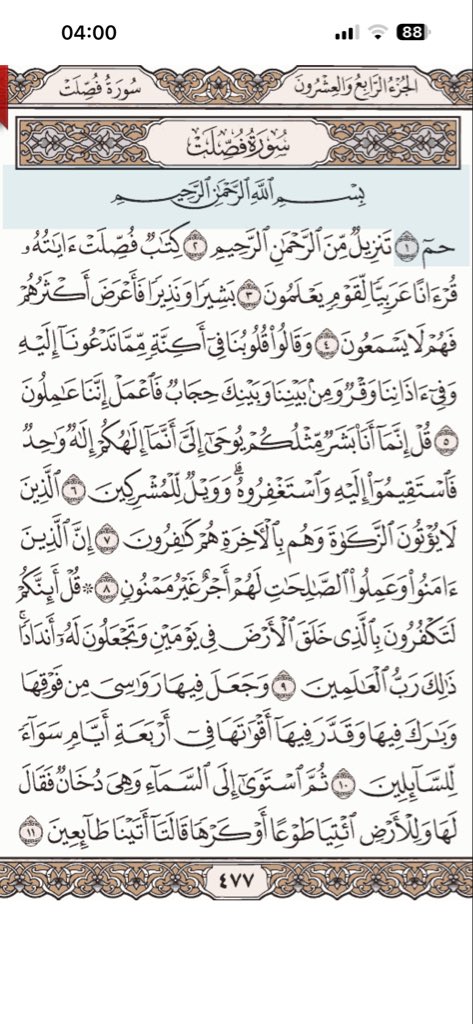 04:00
88
الجُزْءُ الرَّابِعُ وَالعِشْرُونَ
سُورَةُ فُصِّلَتْ
سُورَةُ فُصِّلَتْ
بِسْمِ ٱللَّهِ ٱلرَّحْمَٰنِ ٱلرَّحِيمِ
حمٓ ١ تَنزِيلٌ مِّنَ ٱلرَّحْمَٰنِ ٱلرَّحِيمِ ٢ كِتَٰبٌ فُصِّلَتْ ءَايَٰتُهُۥ
قُرْءَانًا عَرَبِيًّا لِّقَوْمٍ يَعْلَمُونَ ٣ بَشِيرًا وَنَذِيرًا فَأَعْرَضَ أَكْثَرُهُمْ
فَهُمْ لَا يَسْمَعُونَ ٤ وَقَالُوا۟ قُلُوبُنَا فِىٓ أَكِنَّةٍ مِّمَّا تَدْعُونَآ إِلَيْهِ
وَفِىٓ ءَاذَانِنَا وَقْرٌ وَمِنۢ بَيْنِنَا وَبَيْنِكَ حِجَابٌ فَٱعْمَلْ إِنَّنَا عَٰمِلُونَ
٥ قُلْ إِنَّمَآ أَنَا۠ بَشَرٌ مِّثْلُكُمْ يُوحَىٰٓ إِلَىَّ أَنَّمَآ إِلَٰهُكُمْ إِلَٰهٌ وَٰحِدٌ
فَٱسْتَقِيمُوٓا۟ إِلَيْهِ وَٱسْتَغْفِرُوهُ ۗ وَوَيْلٌ لِّلْمُشْرِكِينَ ٦ ٱلَّذِينَ
لَا يُؤْتُونَ ٱلزَّكَوٰةَ وَهُم بِٱلْءَاخِرَةِ هُمْ كَٰفِرُونَ ٧ إِنَّ ٱلَّذِينَ
ءَامَنُوا۟ وَعَمِلُوا۟ ٱلصَّٰلِحَٰتِ لَهُمْ أَجْرٌ غَيْرُ مَمْنُونٍ ٨ ۞ قُلْ أَئِنَّكُمْ
لَتَكْفُرُونَ بِٱلَّذِى خَلَقَ ٱلْأَرْضَ فِى يَوْمَيْنِ وَتَجْعَلُونَ لَهُۥٓ أَندَادًا ۚ
ذَٰلِكَ رَبُّ ٱلْعَٰلَمِينَ ٩ وَجَعَلَ فِيهَا رَوَٰسِىَ مِن فَوْقِهَا
وَبَٰرَكَ فِيهَا وَقَدَّرَ فِيهَآ أَقْوَٰتَهَا فِىٓ أَرْبَعَةِ أَيَّامٍ سَوَآءً
لِّلسَّآئِلِينَ ١٠ ثُمَّ ٱسْتَوَىٰٓ إِلَى ٱلسَّمَآءِ وَهِىَ دُخَانٌ فَقَالَ
لَهَا وَلِلْأَرْضِ ٱئْتِيَا طَوْعًا أَوْ كَرْهًا قَالَتَآ أَتَيْنَا طَآئِعِينَ ١١
٤٧٧